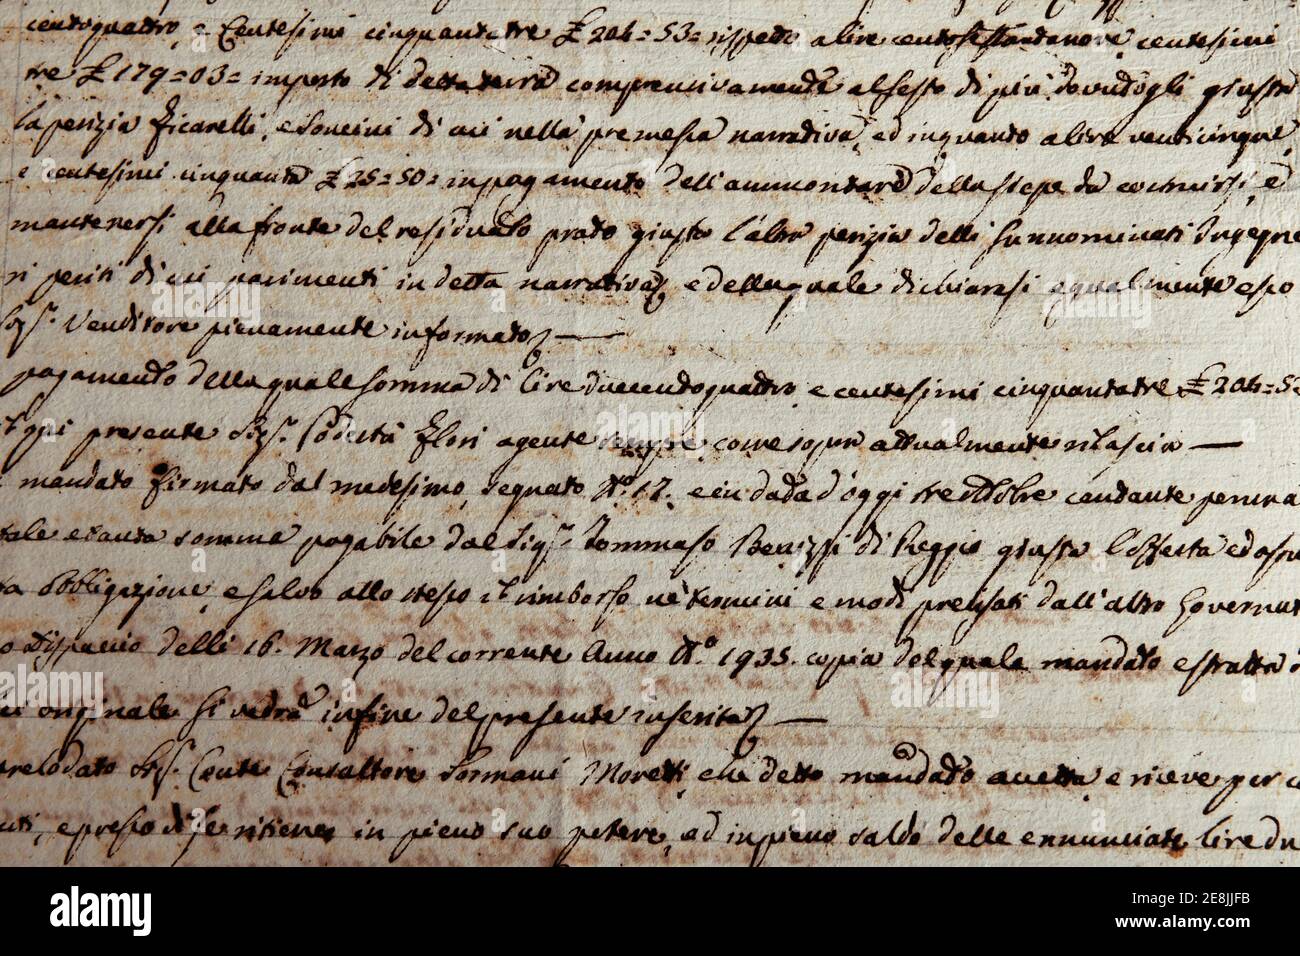 centoquattro, e Centesimi cinquantatre £ 204=53= rispetto a lire centosettantanove centesimi
tre £ 179=03= importo di detta terra comprensivamente al sesto di più dovendogli giusta
la perizia Ficarelli, e Soncini di cui nella premessa narrativa, ed in quanto a lire venticinque,
e centesimi cinquanta £ 25=50= in pagamento dell'ammontare della siepe da costruirsi, e
mantenersi alla fronte del residuato prato giusta l'altra perizia delli sunnominati Ingegne
ri periti di cui parimenti in detta narrativa, e della quale dichiarasi egualmente esso
Sig.r Venditore pienamente informato —
pagamento della quale somma di lire duecentoquattro, e centesimi cinquantatre £ 204=53
qui presente Sig.r Podestà Flori agente sempre come sopra attualmente rilascia —
mandato firmato dal medesimo, segnato N.o 17. e in data d'oggi tre Ottobre
tale e tanta somma pagabile dal Sig.r Tommaso di Reggio giusta l'offerta ed
obbligazione, e salvo allo stesso il rimborso ne' termini e modi precisati dall'altro Governat
Dispaccio delli 16. Marzo del corrente Anno N.o 1935. copia del quale mandato estratta
originale si vedrà infine del presente inserita —
prelodato Sig.r Conte Consultore Sormani Moretti, che detto mandato accetta e riceve per
e presso di se ritiene in pieno suo potere, ed in pieno saldo delle ennunciate lire du
alamy
Image ID: 2E8JJFB
www.alamy.com